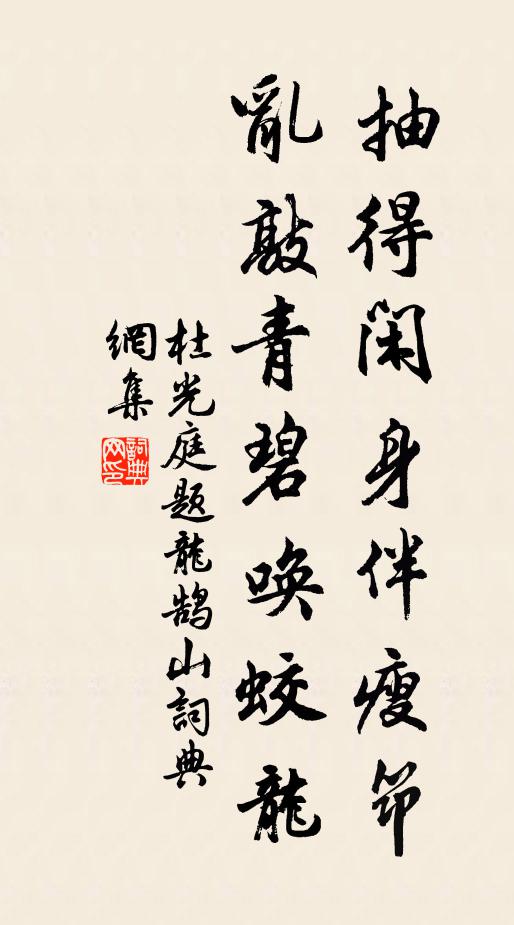 抽得閑身伴瘦筇
亂敲青碧喚蛟龍
杜光庭題龍鵠山詞典
網集
詞典網印